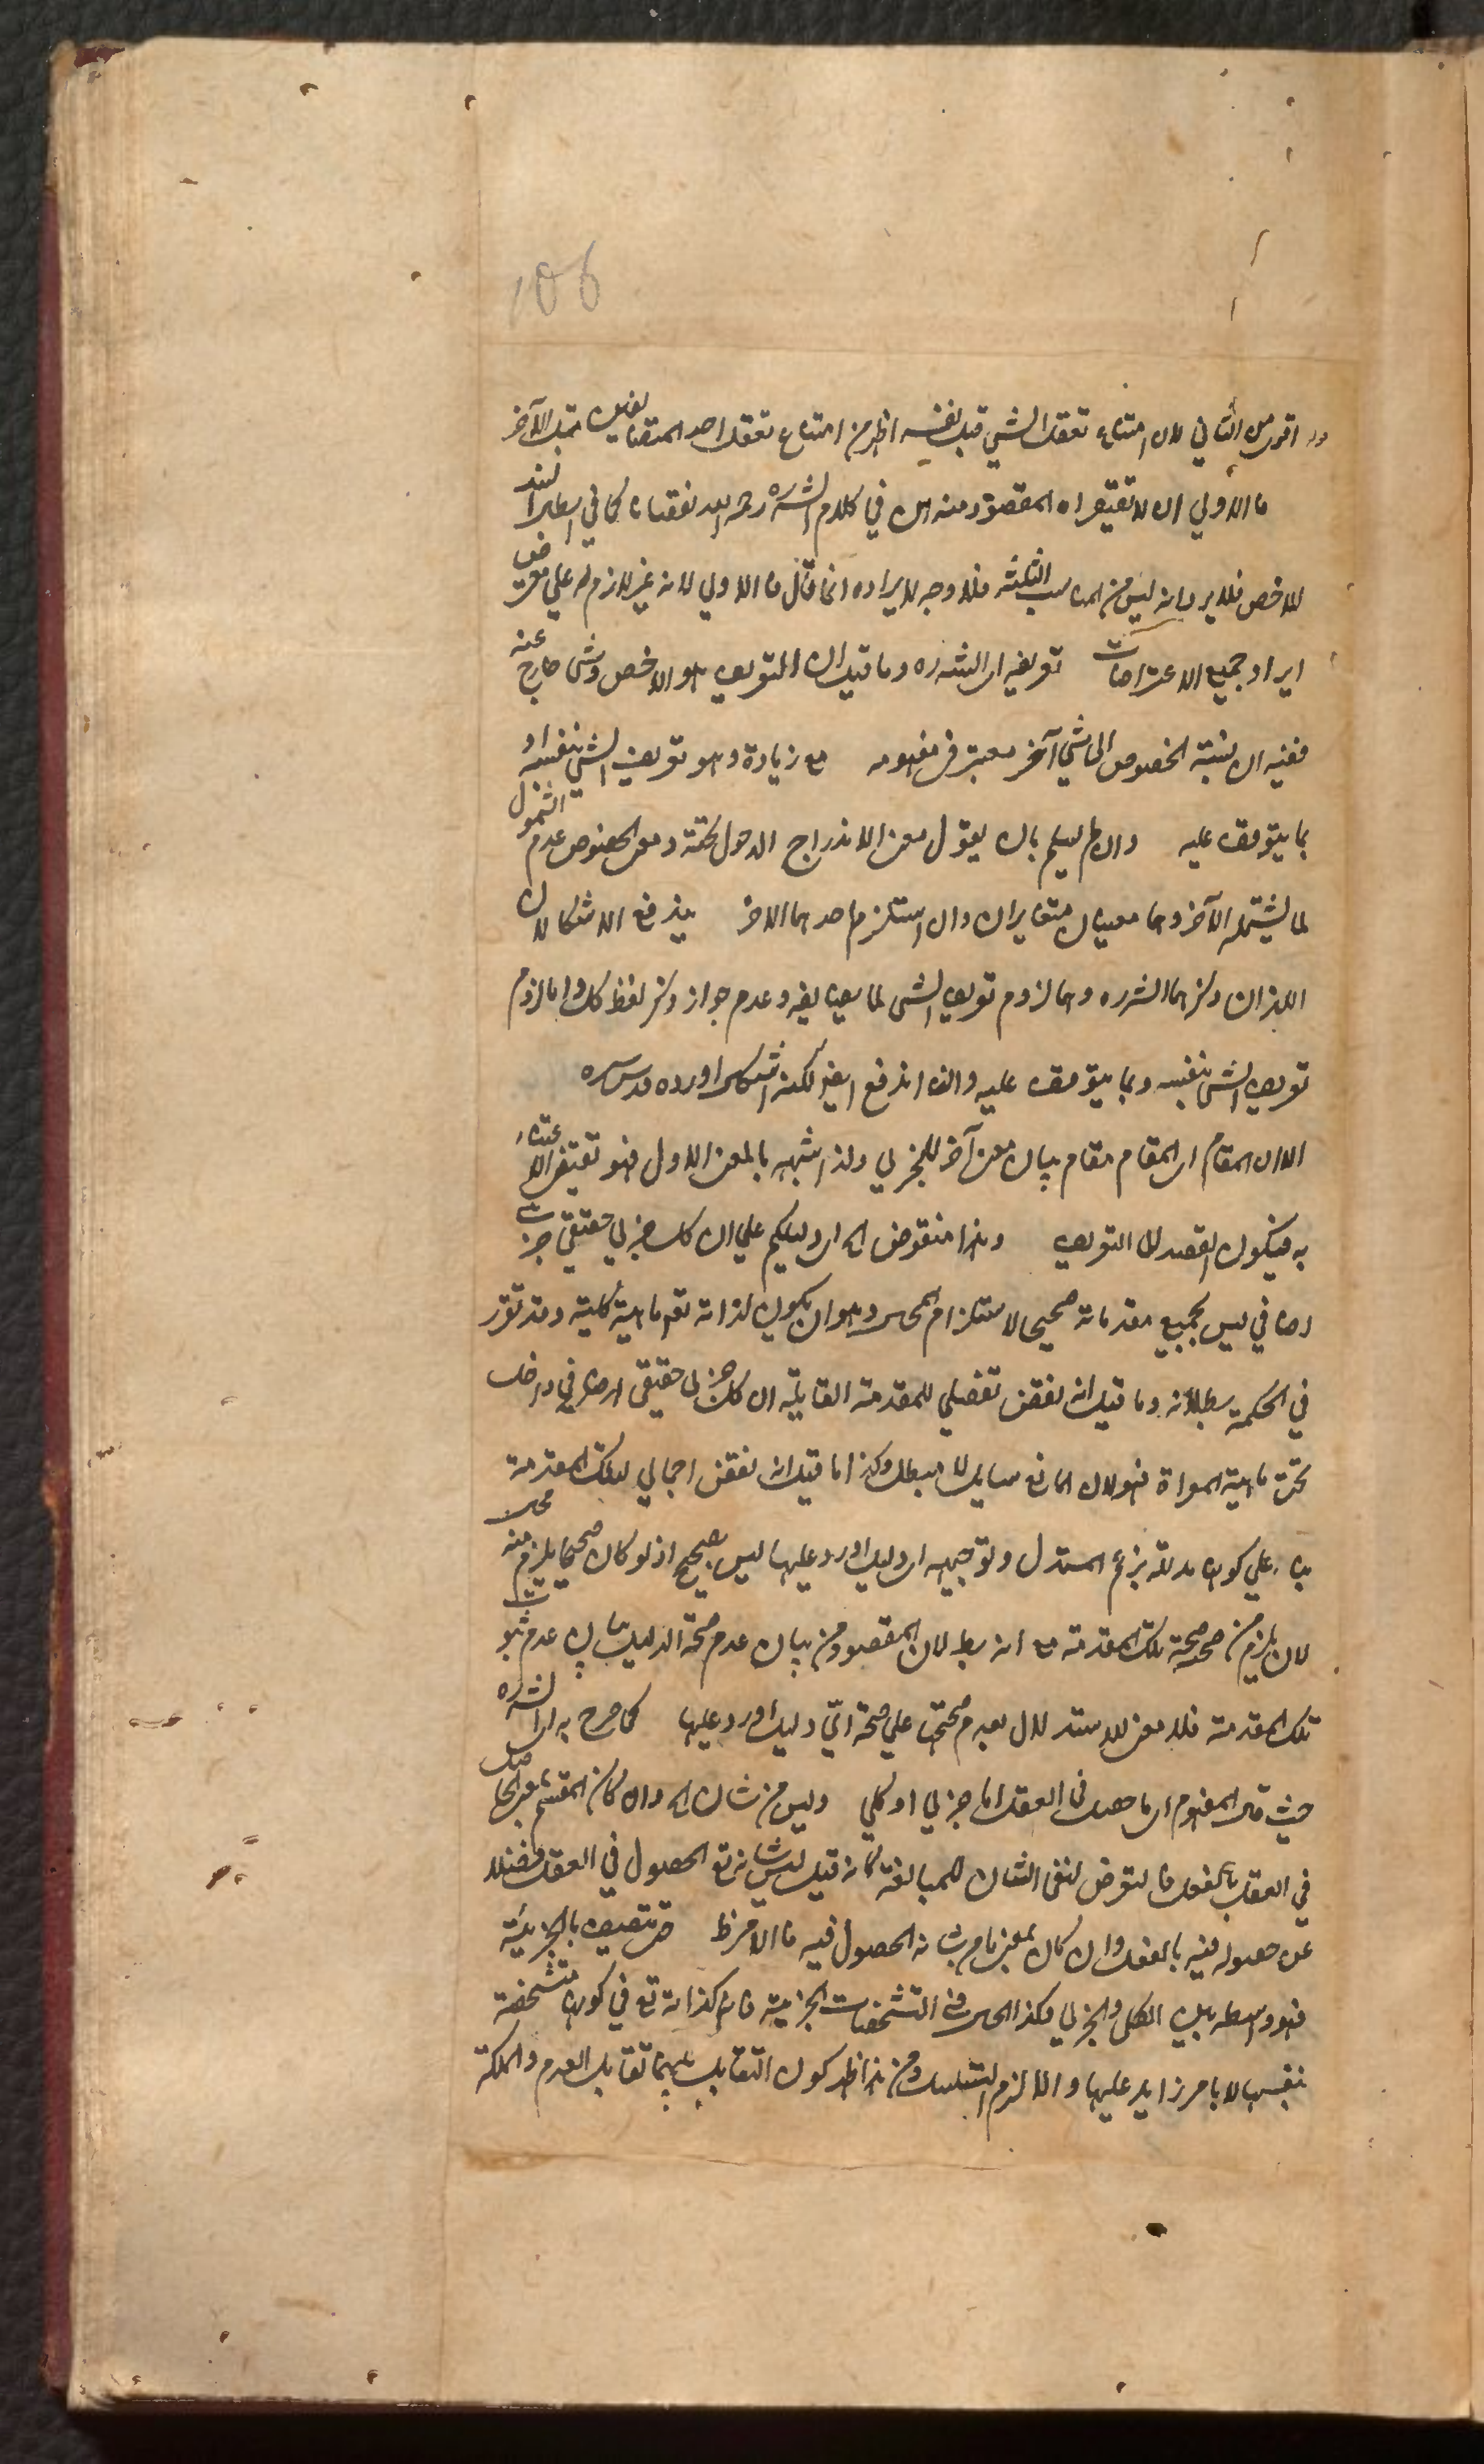 106
اقوى من الثاني لان امتناع تعقل الشي قبل نفسه اظهر من امتناع تعقل احد المتضايفين قبل الآخر
فالاولى ان المقصود منه ان في كلام الشره رحمه الله نقصانا كما في
للاخص فلا يرد انه ليس من المناسب الثلثه فلا وجه لايراده انما قال فالاولى لانه غير لازم له على
ايراد جميع الاعتراضات تعريفه اي الشره وما قيل ان التعريف هو الاخص وشي خارج عنه
ففيه ان نسبة الخصوص الى شي آخر معتبر في مفهومه مع زيادة وهو تعريف الشي بنفسه او
بما يتوقف عليه وان لم يسلم بان يقول معنى الاندراج الدخول تحته ومعنى الخصوص عدم الشمول
لما يشتمله الآخر وهما معنيان متغايران وان استلزم احدهما الاخر يندفع الاشكالان
اللذان ذكرهما الشره وهما لزوم تعريف الشي بما يضايفه وعدم جواز ذكر لفظ كل واما لزوم
تعريف الشي بنفسه وبما يتوقف عليه والف اندفع ايض لكنه اشكال اورده قدس سره
الا ان المقام اي المقام مقام بيان معنى آخر للجزئي ولذا شبهه بالمعنى الاول فهو تقتضي الاعتناء
به فيكون القصد الى التعريف وهذا منقوض اي دليلكم على ان كل جزئي حقيقي جزئي
اضافي ليس بجميع مقدماته صحيحا لاستلزام المحال وهو ان يكون لذاته تعه ماهية كلية وقد تقرر
في الحكمة بطلانه وما قيل انه نقض تفصيلي للمقدمة القايلة ان كل جزئي حقيقي اضافي داخل
تحت ماهية المعراة فهو لان المانع سايل لا مبطل وكذا ما قيل انه نقض اجمالي لتلك المقدمة
بناء على كونها مدللة بزعم المستدل وتوجيهه ان دليل اورد عليها ليس بصحيح اذ لو كان صحيحا يلزم منه محال
لان يلزم من صحته صحة تلك المقدمة مع انه بط لان المقصود من بيان عدم صحة الدليل بيان عدم ثبوت
تلك المقدمة فلا معنى للاستدلال بعدم صحتها على صحة اي دليل اورد عليها كما صرح به الشره
حيث قال المفهوم اي ما حصل في العقل اما جزئي او كلي وليس من شان الخ وان كان المقسم هو الحاصل
في العقل بالفعل فالتعرض لنفي الشان للمبالغة كانه قيل ليس شانه تع الحصول في العقل فضلا
عن حصوله فيه بالفعل وان كان بمعنى ما من شانه الحصول فيه فالامر ظ حتى يتصف بالجزئية
فهو واسطة بين الكلي والجزئي وكذا الحال في التشخصات الجزئية فانها كذاته تع في كونها متشخصة
بنفسها لا بامر زايد عليها والا لزم التسلسل ومن هذا ظهر كون التقابل بينهما تقابل العدم والملكة